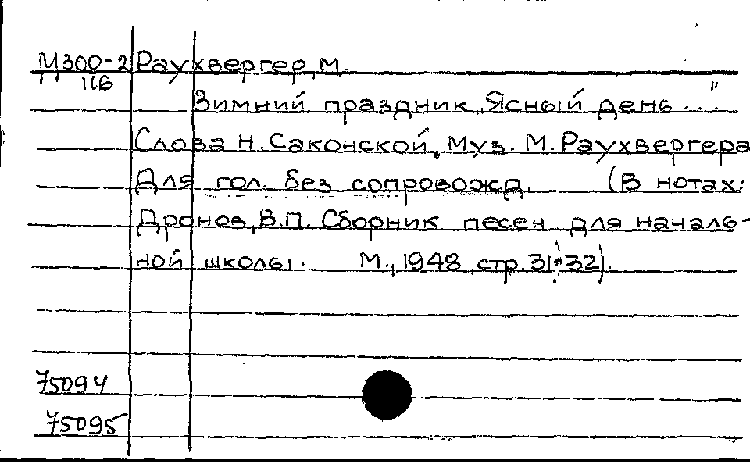 М300-2 Раухвергер, М.
116
Зимний праздник „Ясный день..."
Слова Н. Саконской, Муз. М. Раухвергера
Для гол. без сопровожд. (В нотах:
Дронов, В.П. Сборник песен для началь-
ной школы. М., 1948, стр. 31-32).
75094
75095